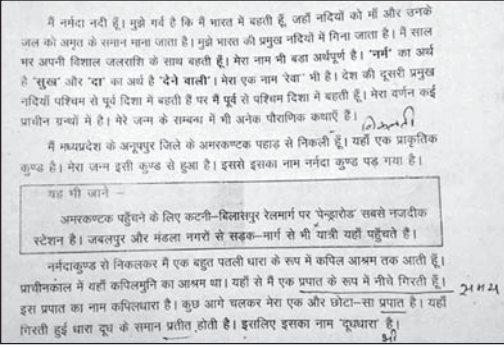 मैं नर्मदा नदी हूँ। मुझे गर्व है कि मैं भारत में बहती हूँ, जहाँ नदियों को माँ और उनके
जल को अमृत के समान माना जाता है। मुझे भारत की प्रमुख नदियों में गिना जाता है। मैं साल
भर अपनी विशाल जलराशि के साथ बहती हूँ। मेरा नाम भी बड़ा अर्थपूर्ण है। 'नर्म' का अर्थ
है 'सुख' और 'दा' का अर्थ है 'देने वाली'। मेरा एक नाम 'रेवा' भी है। देश की दूसरी प्रमुख
नदियाँ पश्चिम से पूर्व दिशा में बहती हैं पर मैं पूर्व से पश्चिम दिशा में बहती हूँ। मेरा वर्णन कई
प्राचीन ग्रन्थों में है। मेरे जन्म के सम्बन्ध में भी अनेक पौराणिक कथाएँ हैं।
मैं मध्यप्रदेश के अनूपपुर जिले के अमरकण्टक पहाड़ से निकली हूँ। यहाँ एक प्राकृतिक
कुण्ड है। मेरा जन्म इसी कुण्ड से हुआ है। इससे इसका नाम नर्मदा कुण्ड पड़ गया है।
यह भी जाने –
अमरकण्टक पहुँचने के लिए कटनी-बिलासपुर रेलमार्ग पर 'पेन्ड्रारोड' सबसे नजदीक
स्टेशन है। जबलपुर और मंडला नगरों से सड़क-मार्ग से भी यात्री यहाँ पहुँचते है।
नर्मदाकुण्ड से निकलकर मैं एक बहुत पतली धारा के रूप में कपिल आश्रम तक आती हूँ।
प्राचीनकाल में यहाँ कपिलमुनि का आश्रम था। यहाँ से मैं एक प्रपात के रूप में नीचे गिरती हूँ।
समय
इस प्रपात का नाम कपिलधारा है। कुछ आगे चलकर मेरा एक और छोटा-सा प्रपात है। यहाँ
गिरती हुई धारा दूध के समान प्रतीत होती है। इसलिए इसका नाम 'दूधधारा' है।
भी